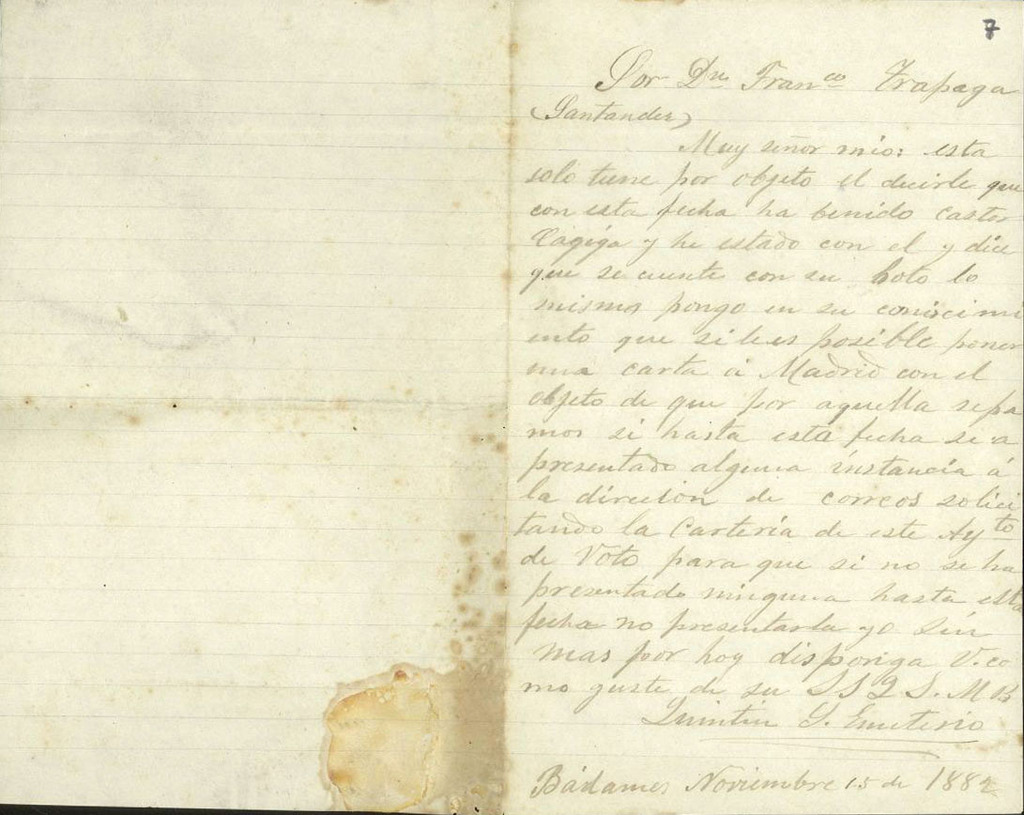 7
Sor Dn Franco Trapaga
(Santander)
Muy señor mio: esta
solo tiene por objeto el decirle que
con esta fecha ha benido Castor
Cagiga y he estado con el y dice
que se cuente con su boto lo
mismo pongo en su conocimi
ento que si le es posible poner
una carta á Madrid con el
objeto de que por aquella sepa
mos si hasta esta fecha se a
presentado alguna instancia á
la direcion de correos solici
tando la Cartería de este Ayto
de Voto para que si no se ha
presentado ninguna hasta esta
fecha no presentarla yo sin
mas por hoy disponga V. co
mo guste de su S S Q S. M B
Quintin S. Emeterio
Bádames Noviembre 15 de 188